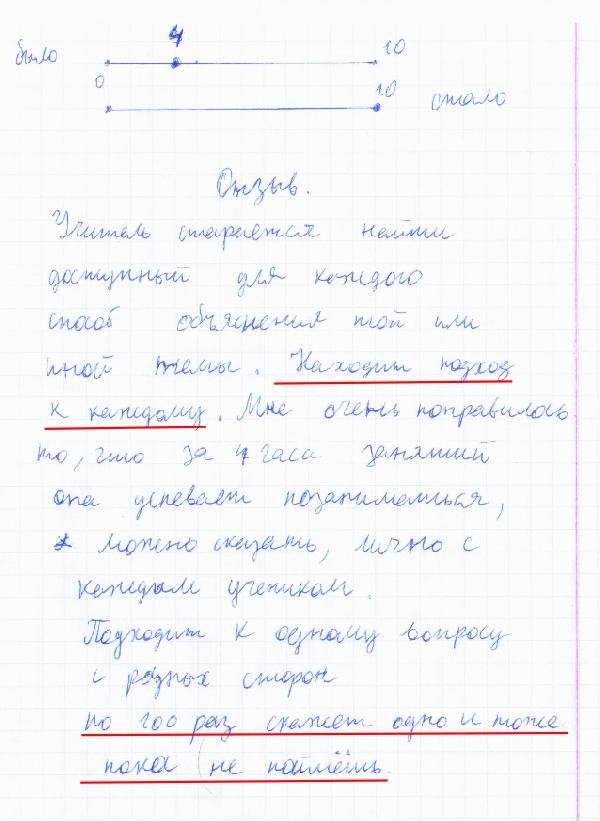 4
было 10
0
10 стало
Отзыв.
Учитель старается найти
доступный для каждого
способ объяснения той или
иной темы. Находит подход
к каждому. Мне очень понравилось
то, что за 4 часа занятий
она успевает позаниматься,
можно сказать, лично с
каждым учеником.
Подходит к одному вопросу
с разных сторон
по 100 раз скажет одно и тоже
пока не поймёшь.